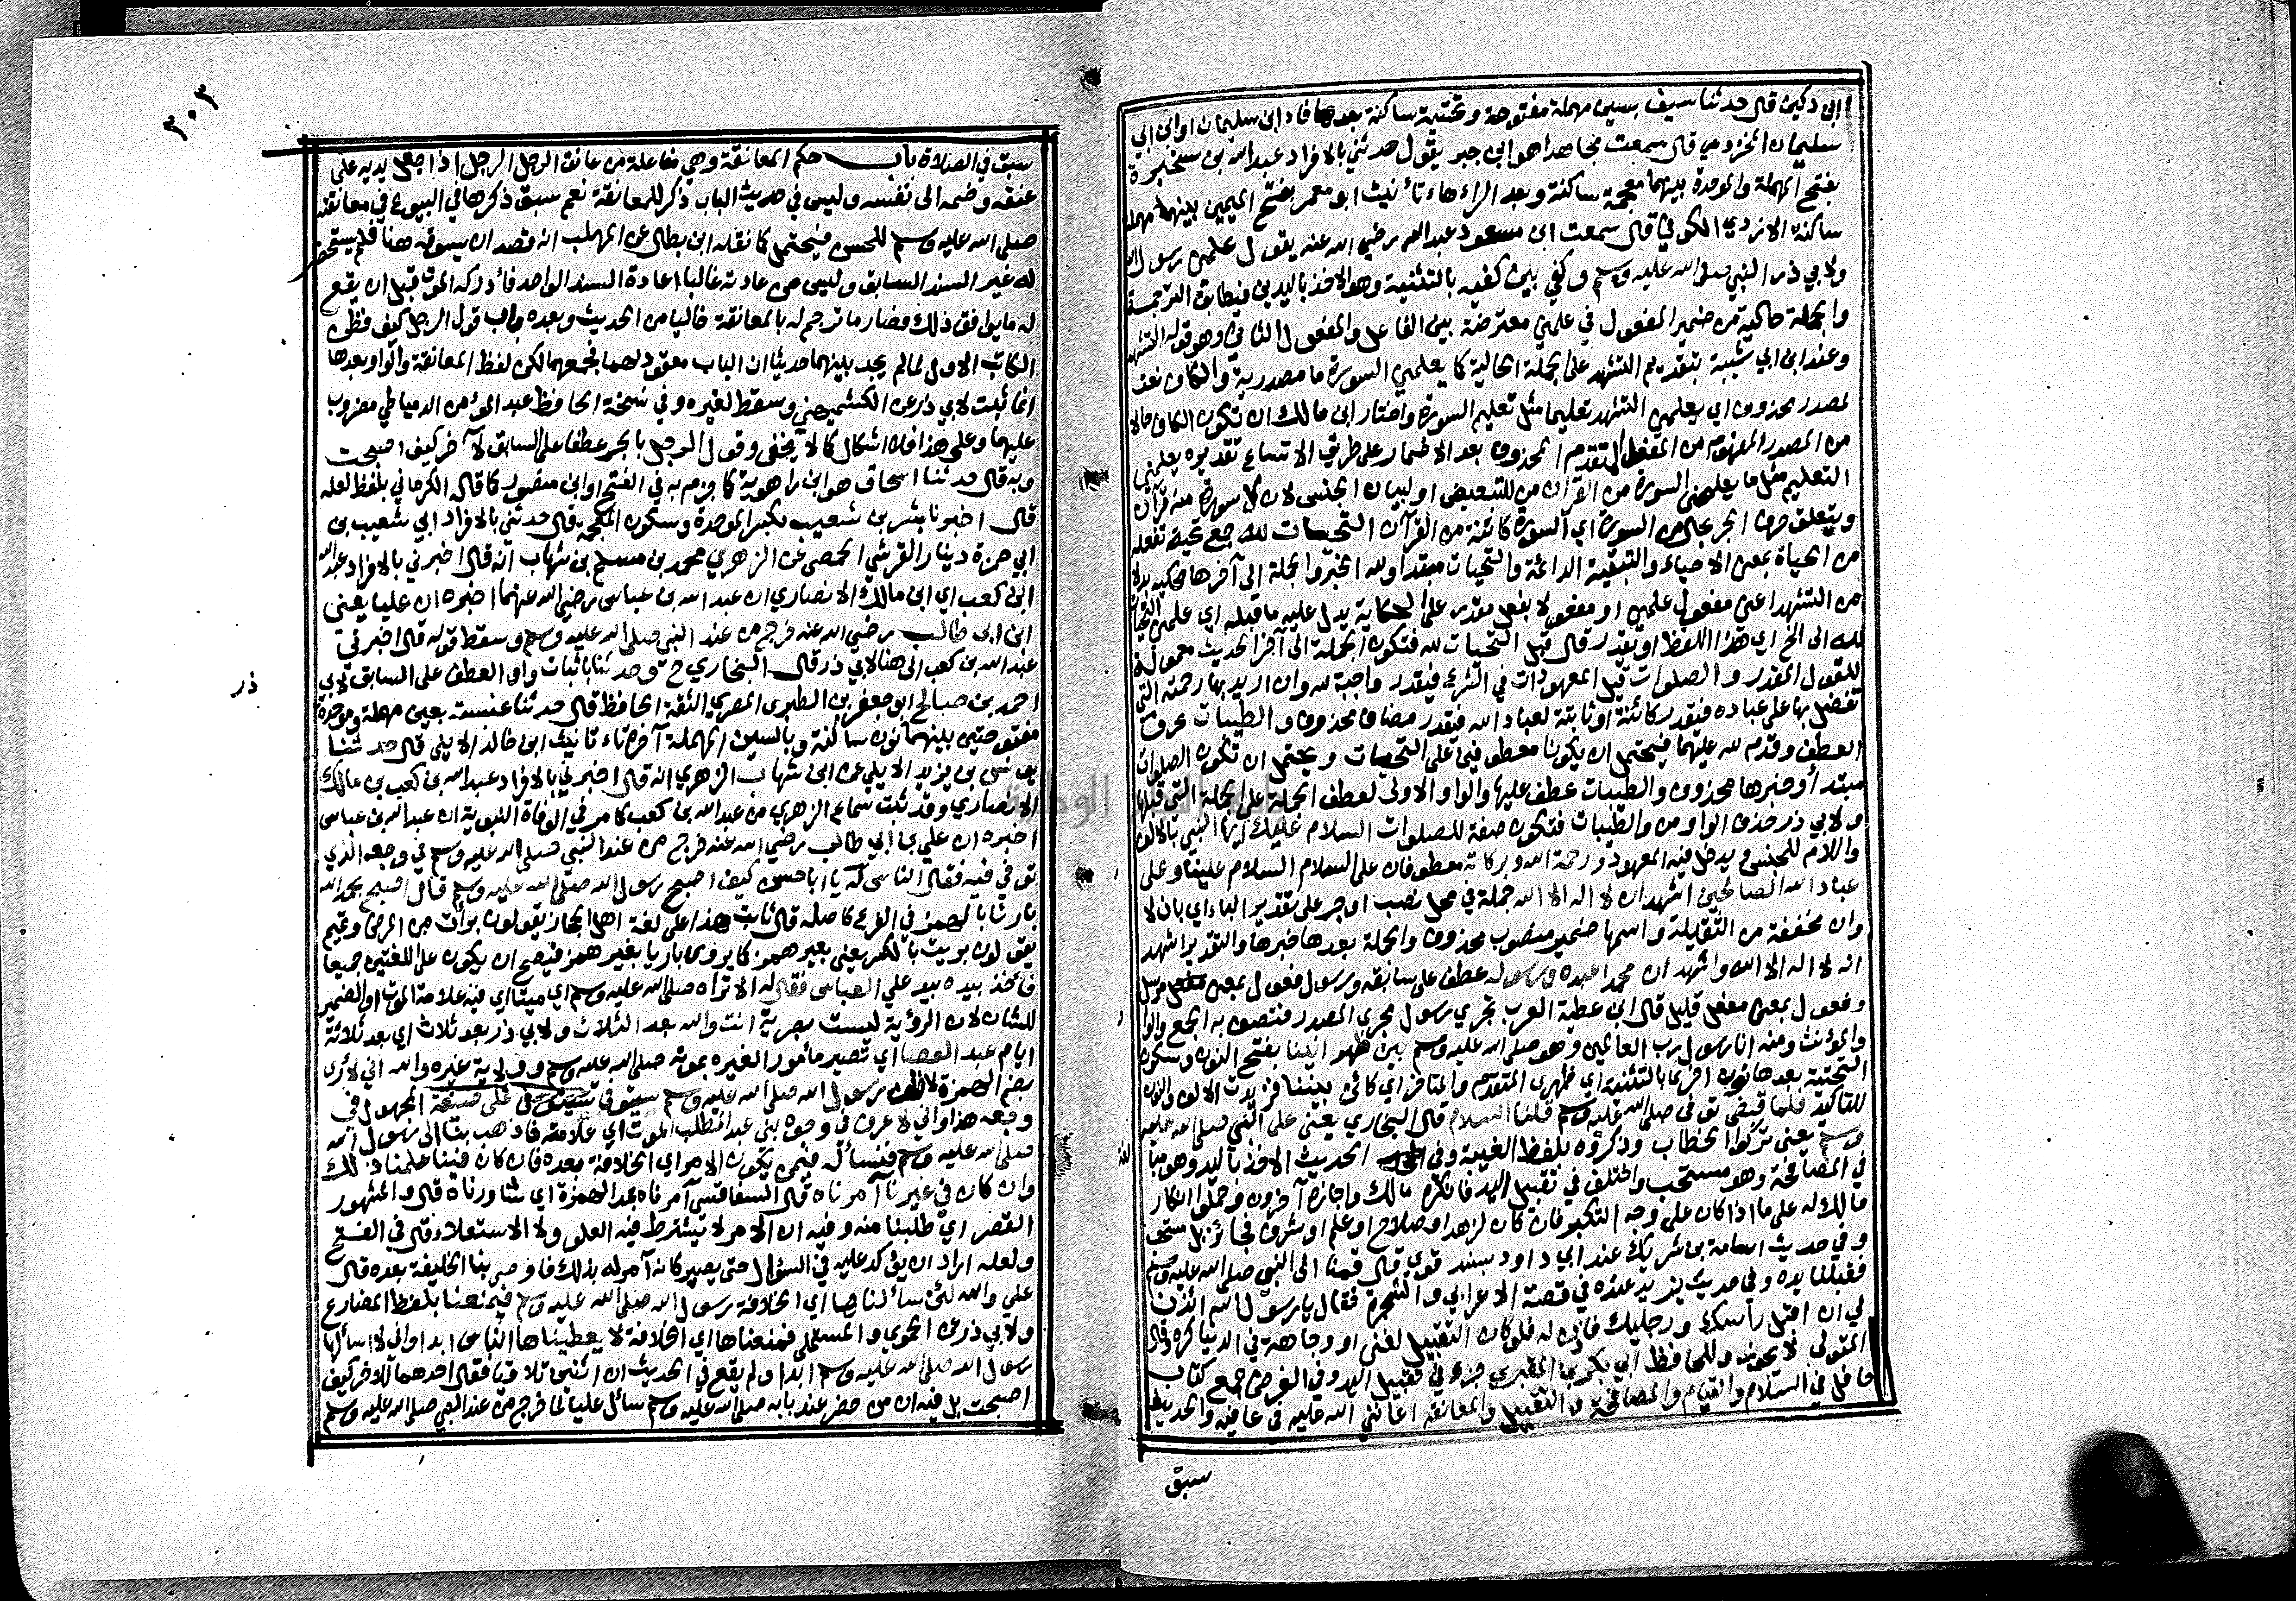 ابن دكين قال حدثنا سيف بسين مهملة مفتوحة وتحتية ساكنة بعدها فاء ابن سليمان او ابن ابي
سليمان المخزومي قال سمعت مجاهدا هو ابن جبر يقول حدثني بالافراد عبد الله بن سخبرة
بفتح المهملة والموحدة بينهما معجمة ساكنة وبعد الراء هاء تأنيث ابو معمر بفتح الميمين بينهما مهملة
ساكنة الازدي الكوفي قال سمعت ابن مسعود عبد الله رضي الله عنه يقول علمني رسول الله
ولابي ذر النبي صلى الله عليه وسلم وكفي بين كفيه بالتثنية وهو الاخذ باليدين فيطابق الترجمة
والجملة حالية من ضمير المفعول في علمني معترضة بين الفاعل والمفعول الثاني وهو قوله التشهد
وعند ابن ابي شيبة بتقديم التشهد على الجملة الحالية كما يعلمني السورة ما مصدرية والكاف نعت
لمصدر محذوف اي يعلمني التشهد تعليما مثل تعليم السورة واختار ابن مالك ان تكون الكاف حالا
من المصدر المفهوم من الفعل المتقدم المحذوف بعد الاضمار على طريق الاتساع تقديره يعلمني
التعليم مثل ما يعلمني السورة من القرآن من للتبعيض او لبيان الجنس لان كل سورة منه قرآن
ويتعلق حرف الجر بحال من السورة اي السورة كائنة من القرآن التحيات لله جمع تحية تفعلة
من الحياة بمعنى الاحياء والتبقية الدائمة والتحيات مبتدأ ولله الخبر والجملة الى آخرها محكية بدلا
من التشهد اعني مفعول علمني او مفعول لا بفعل مقدر على الحكاية يدل عليه ما قبله اي علمني التحيات
لله الى الخ اي هذا اللفظ او يقدر قال قبل التحيات لله فتكون الجملة الى آخر الحديث معمولة
للقول المقدر والصلوات قيل المعهودات في الشرع فيقدر واجبة لله وان اريد بها رحمته التي
تفضل بها على عباده فيقدر كائنة او ثابتة لعباد الله فيقدر مضاف محذوف والطيبات حرف
العطف وقدم لله عليهما فيحتمل ان يكونا معطوفين على التحيات ويحتمل ان تكون الصلوات
مبتدأ وخبرها محذوف والطيبات عطف عليها والواو الاولى لعطف الجملة على الجملة التي قبلها
ولابي ذر حذف الواو من والطيبات فتكون صفة للصلوات السلام عليك ايها النبي بالالف
واللام للجنس ويدخل فيه المعهود ورحمة الله وبركاته معطوفان على السلام السلام علينا وعلى
عباد الله الصالحين اشهد ان لا اله الا الله جملة في محل نصب او جر على تقدير الباء اي بان لا
وان مخففة من الثقيلة واسمها ضمير منصوب محذوف والجملة بعدها خبرها والتقدير اشهد
انه لا اله الا الله واشهد ان محمدا عبده ورسوله عطف على سابقه ورسول فعول بمعنى مفعل مرسل
وفعول بمعنى مفعل قليل قال ابن عطية العرب تجري رسول مجرى المصدر فتصف به الجمع والواحد
والمؤنث ومنه انا رسول رب العالمين وهو صلى الله عليه وسلم بين ظهرانينا بفتح النون وسكون
التحتية بعدها نون اخرى بالتثنية اي ظهري المتقدم والمتاخر اي كائن بيننا فزيدت الالف والنون
للتاكيد فلما قبض توفي صلى الله عليه وسلم قلنا السلام قال البخاري يعني على النبي صلى الله عليه
وسلم يعني تركوا الخطاب وذكروه بلفظ الغيبة وفي الحديث الاخذ باليد وهو مبالغة
في المصافحة وهو مستحب واختلف في تقبيل اليد فانكره مالك واجازه آخرون وحملوا انكار
مالك له على ما اذا كان على وجه التكبر فان كان لزهد او صلاح او علم او شرف فجائز بل مستحب
وفي حديث اسامة بن شريك عند ابي داود بسند قوي قال قمنا الى النبي صلى الله عليه وسلم
فقبلنا يده وفي حديث بريد عنده في قصة الاعرابي والشجرة فقال يا رسول الله ائذن
لي ان اقبل رأسك ورجليك فاذن له فلو كان التقبيل لغنى او وجاهة في الدنيا كره وقال
المتولي لا يجوز وللحافظ ابي بكر بن المقري جزء في تقبيل اليد وفي الغرض جمع كتاب
حافل في السلام والقيام والمصافحة والتقبيل والمعانقة اعانني الله عليه في عافية والحديث
سبق
٣٠٣
سبق في الصلاة باب حكم المعانقة وهي مفاعلة من عانق الرجل الرجل اذا جعل يديه على
عنقه وضمه الى نفسه وليس في حديث الباب ذكر للمعانقة نعم سبق ذكرها في البيوع في معانقته
صلى الله عليه وسلم للحسن فيحتمل كما نقله ابن بطال عن المهلب انه قصد ان يسوقه هنا فلم يستحضر
له غير السند السابق وليس من عادته غالبا اعادة السند الواحد فأدركه الموت قبل ان يقع
له ما يوافق ذلك فصار ما ترجم له بالمعانقة خاليا من الحديث وبعده باب قول الرجل كيف فظن
الكاتب الاول لما لم يجد بينهما حديثا ان الباب معقود لهما فجمعهما لكن لفظ المعانقة والواو بعدها
انما ثبت لابي ذر عن الكشميهني وسقط لغيره وفي نسخة الحافظ عبد المؤمن الدمياطي مضروب
عليهما وعلى هذا فلا اشكال كما لا يخفى وقول الرجل بالجر عطفا على السابق لآخر كيف اصبحت
وبه قال حدثنا اسحاق هو ابن راهوية كما جزم به في الفتح او ابن منصور كما قاله الكرماني بلفظ لعله
قال اخبرنا بشر بن شعيب بكسر الموحدة وسكون المعجمة قال حدثني بالافراد ابي شعيب بن
ابي حمزة دينار القرشي الحمصي عن الزهري محمد بن مسلم بن شهاب انه قال اخبرني بالافراد عبد الله
ابن كعب اي ابن مالك الانصاري ان عبد الله بن عباس رضي الله عنهما اخبره ان عليا يعني
ابن ابي طالب رضي الله عنه خرج من عند النبي صلى الله عليه وسلم وسقط قوله قال اخبرني
عبد الله بن كعب الى هنا لابي ذر قال البخاري ح وحدثنا باثبات واو العطف على السابق لابي
ذر
احمد بن صالح ابو جعفر بن الطبري المصري الثقة الحافظ قال حدثنا عنبسة بعين مهملة وموحدة
مفتوحتين بينهما نون ساكنة وبالسين المهملة آخره تاء تانيث ابن خالد الايلي قال حدثنا
يونس بن يزيد الايلي عن ابن شهاب الزهري انه قال اخبرني بالافراد عبد الله بن كعب بن مالك
الانصاري وقد ثبت سماع الزهري من عبد الله بن كعب كما مر في الوفاة النبوية ان عبد الله بن عباس
اخبره ان علي بن ابي طالب رضي الله عنه خرج من عند النبي صلى الله عليه وسلم في وجعه الذي
توفي فيه فقال الناس له يا ابا حسن كيف اصبح رسول الله صلى الله عليه وسلم قال اصبح بحمد الله
بارئا بالهمز في الفرع كاصله قال ثابت هذا على لغة اهل الحجاز يقولون برأت من المرض وتميم
يقولون بريت بالكسر يعني بغير همز كما يروى باريا بغير همز فيصح ان يكون على اللغتين جميعا
فأخذ بيده بيد علي العباس فقال له الا تراه صلى الله عليه وسلم اي ميتا اي فيه علامة الموت او الضمير
للشان لان الرؤية ليست بصرية انت والله بعد الثلاث ولابي ذر بعد ثلاث اي بعد ثلاثة
ايام عبد العصا اي تصير مأمور الغيره بموته صلى الله عليه وسلم وولاية غيره والله اني لأرى
بضم الهمزة لاظن رسول الله صلى الله عليه وسلم سيتوفى على صيغة المجهول في
وجعه هذا واني لاعرف في وجوه بني عبد المطلب الموت اي علامته فاذهب بنا الى رسول الله
صلى الله عليه وسلم فنسأله فيمن يكون الامر اي الخلافة بعده فان كان فينا علمنا ذلك
وان كان في غيرنا آمرناه قال السفاقسي آمرناه بمد الهمزة اي شاورناه قال والمشهور
القصر اي طلبنا منه وفيه ان الامر لا يشترط فيه العلو ولا الاستعلاء وقال في الفتح
ولعله اراد ان يؤكد عليه في السؤال حتى يصير كانه آمر له بذلك فاوصى بنا الخليفة بعده قال
علي والله لئن سألناها اي الخلافة رسول الله صلى الله عليه وسلم فيمنعنا بلفظ المضارع
ولابي ذر عن الحموي والمستملي فمنعناها اي الخلافة لا يعطيناها الناس ابدا واني لا اسألها
رسول الله صلى الله عليه وسلم ابدا ولم يقع في الحديث ان اثنين تلاقيا فقال احدهما للاخر كيف
اصبحت بل فيه ان من حضر عند بابه صلى الله عليه وسلم سائل عليا لما خرج من عند النبي صلى الله عليه وسلم